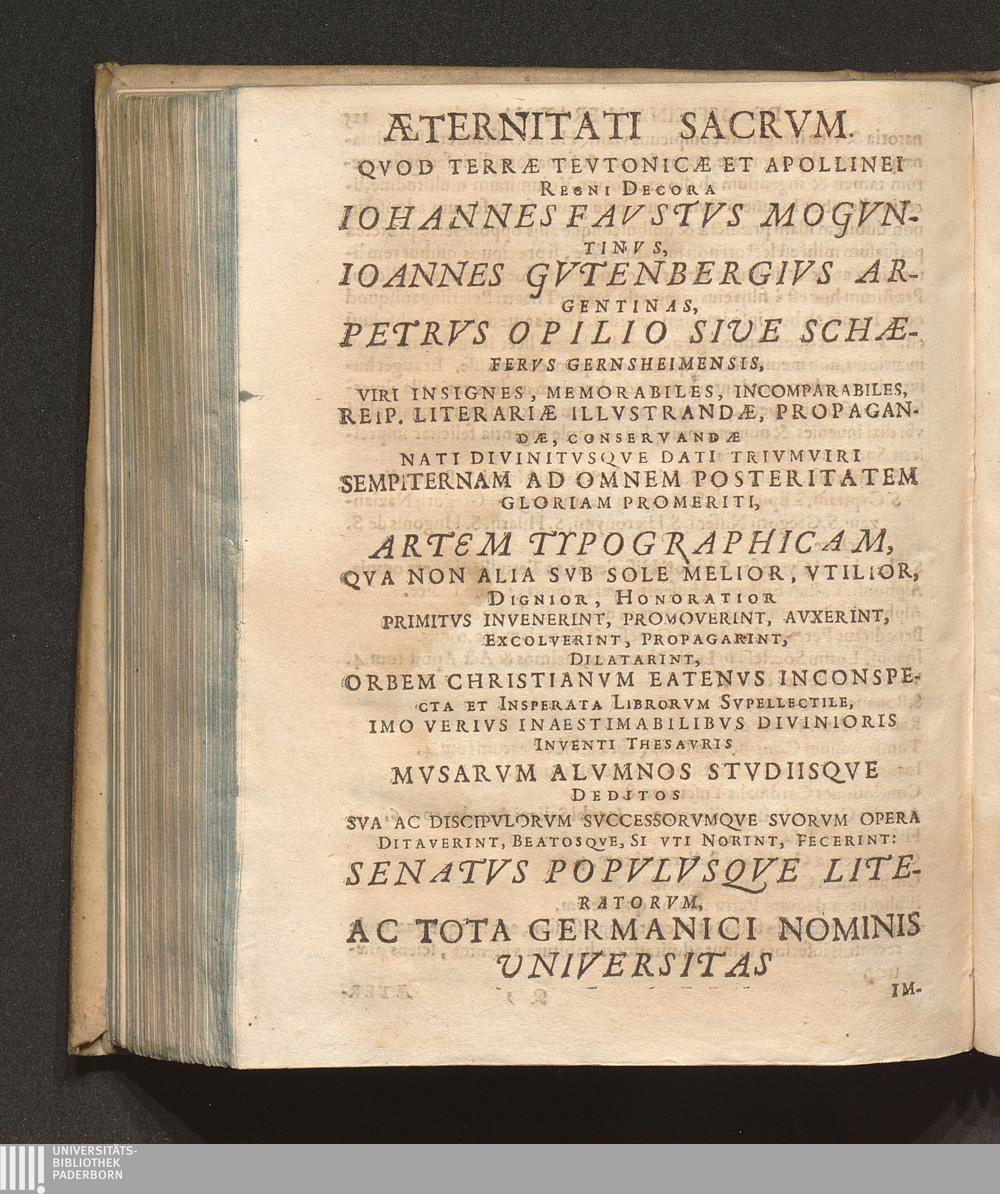 ÆTERNITATI SACRVM.
QVOD TERRÆ TEVTONICÆ ET APOLLINEI
REGNI DECORA
IOHANNES FAVSTVS MOGVN-
TINVS,
IOANNES GVTENBERGIVS AR-
GENTINAS,
PETRVS OPILIO SIUE SCHÆ-
FERVS GERNSHEIMENSIS,
VIRI INSIGNES, MEMORABILES, INCOMPARABILES,
REIP. LITERARIÆ ILLVSTRANDÆ, PROPAGAN-
DÆ, CONSERVANDÆ
NATI DIVINITVSQVE DATI TRIVMVIRI
SEMPITERNAM AD OMNEM POSTERITATEM
GLORIAM PROMERITI,
ARTEM TYPOGRAPHICAM,
QVA NON ALIA SVB SOLE MELIOR, VTILIOR,
DIGNIOR, HONORATIOR
PRIMITVS INVENERINT, PROMOVERINT, AVXERINT,
EXCOLVERINT, PROPAGARINT,
DILATARINT,
ORBEM CHRISTIANVM EATENVS INCONSPE-
CTA ET INSPERATA LIBRORVM SVPELLECTILE,
IMO VERIVS INAESTIMABILIBVS DIVINIORIS
INVENTI THESAVRIS
MVSARVM ALVMNOS STVDIISQVE
DEDITOS
SVA AC DISCIPVLORVM SVCCESSORVMQVE SVORVM OPERA
DITAVERINT, BEATOSQVE, SI VTI NORINT, FECERINT:
SENATVS POPVLVSQVE LITE-
RATORVM,
AC TOTA GERMANICI NOMINIS
UNIVERSITAS
IM-
UNIVERSITÄTS-
BIBLIOTHEK
PADERBORN